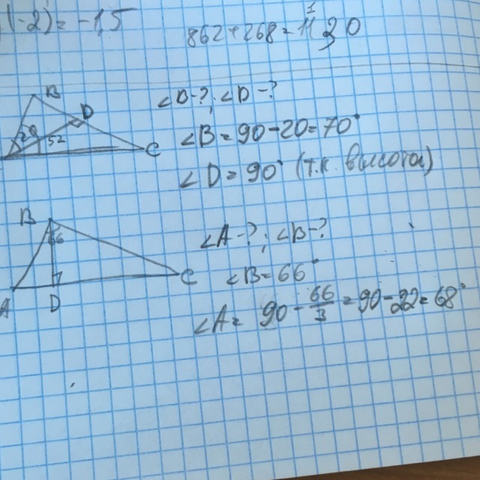 (-2) = -1,5
862+268=1130
B
D
20
52
C
∠B-?, ∠D-?
∠B=90-20=70°
∠D=90° (т.к. высота)
B
66
A
D
C
∠A-?; ∠B-?
∠B=66°
∠A= 90-66/3=90-22=68°